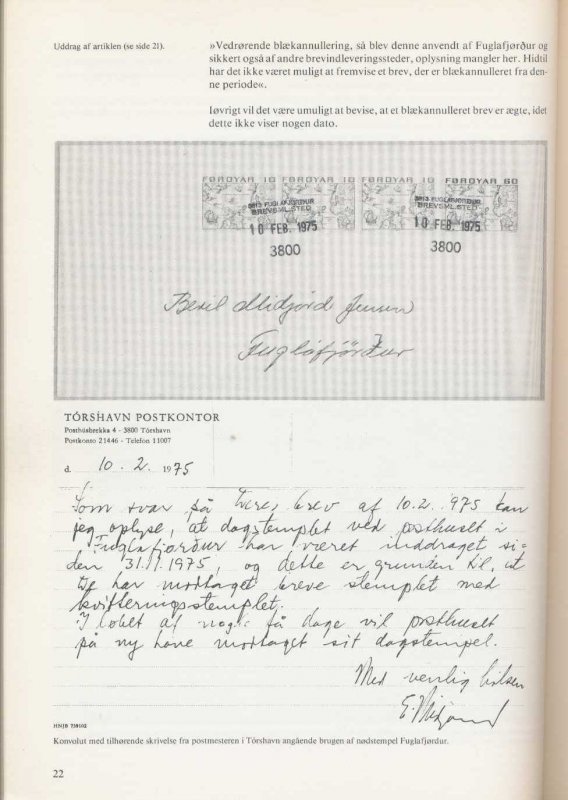 Uddrag af artiklen (se side 21).
»Vedrørende blækannullering, så blev denne anvendt af Fuglafjørður og
sikkert også af andre brevindleveringssteder, oplysning mangler her. Hidtil
har det ikke været muligt at fremvise et brev, der er blækannulleret fra den-
ne periode«.
Iøvrigt vil det være umuligt at bevise, at et blækannulleret brev er ægte, idet
dette ikke viser nogen dato.
FØROYAR 10 FØROYAR 10 FØROYAR 10 FØROYAR 60
FUGLAFJØRÐUR
BREVSMLSTED
10 FEB. 1975
3800
FUGLAFJØRÐUR
BREVSMLSTED
10 FEB. 1975
3800
Midjord Jensen
Fuglafjörður
TÓRSHAVN POSTKONTOR
Posthúsbrekka 4 - 3800 Tórshavn
Postkonto 21446 - Telefon 11007
d. 10. 2. 1975
Som svar på Deres brev af 10.2. 1975 kan
jeg oplyse, at dagstemplet ved posthuset i
Fuglafjørður har været inddraget si-
den 31.11.1975, og dette er grunden til, at
De har modtaget breve stemplet med
kvitteringsstemplet.
I løbet af nogle få dage vil posthuset
på ny have modtaget sit dagstempel.
Med venlig hilsen
HNJB 730102
Konvolut med tilhørende skrivelse fra postmesteren i Tórshavn angående brugen af nødstempel Fuglafjørdur.
22